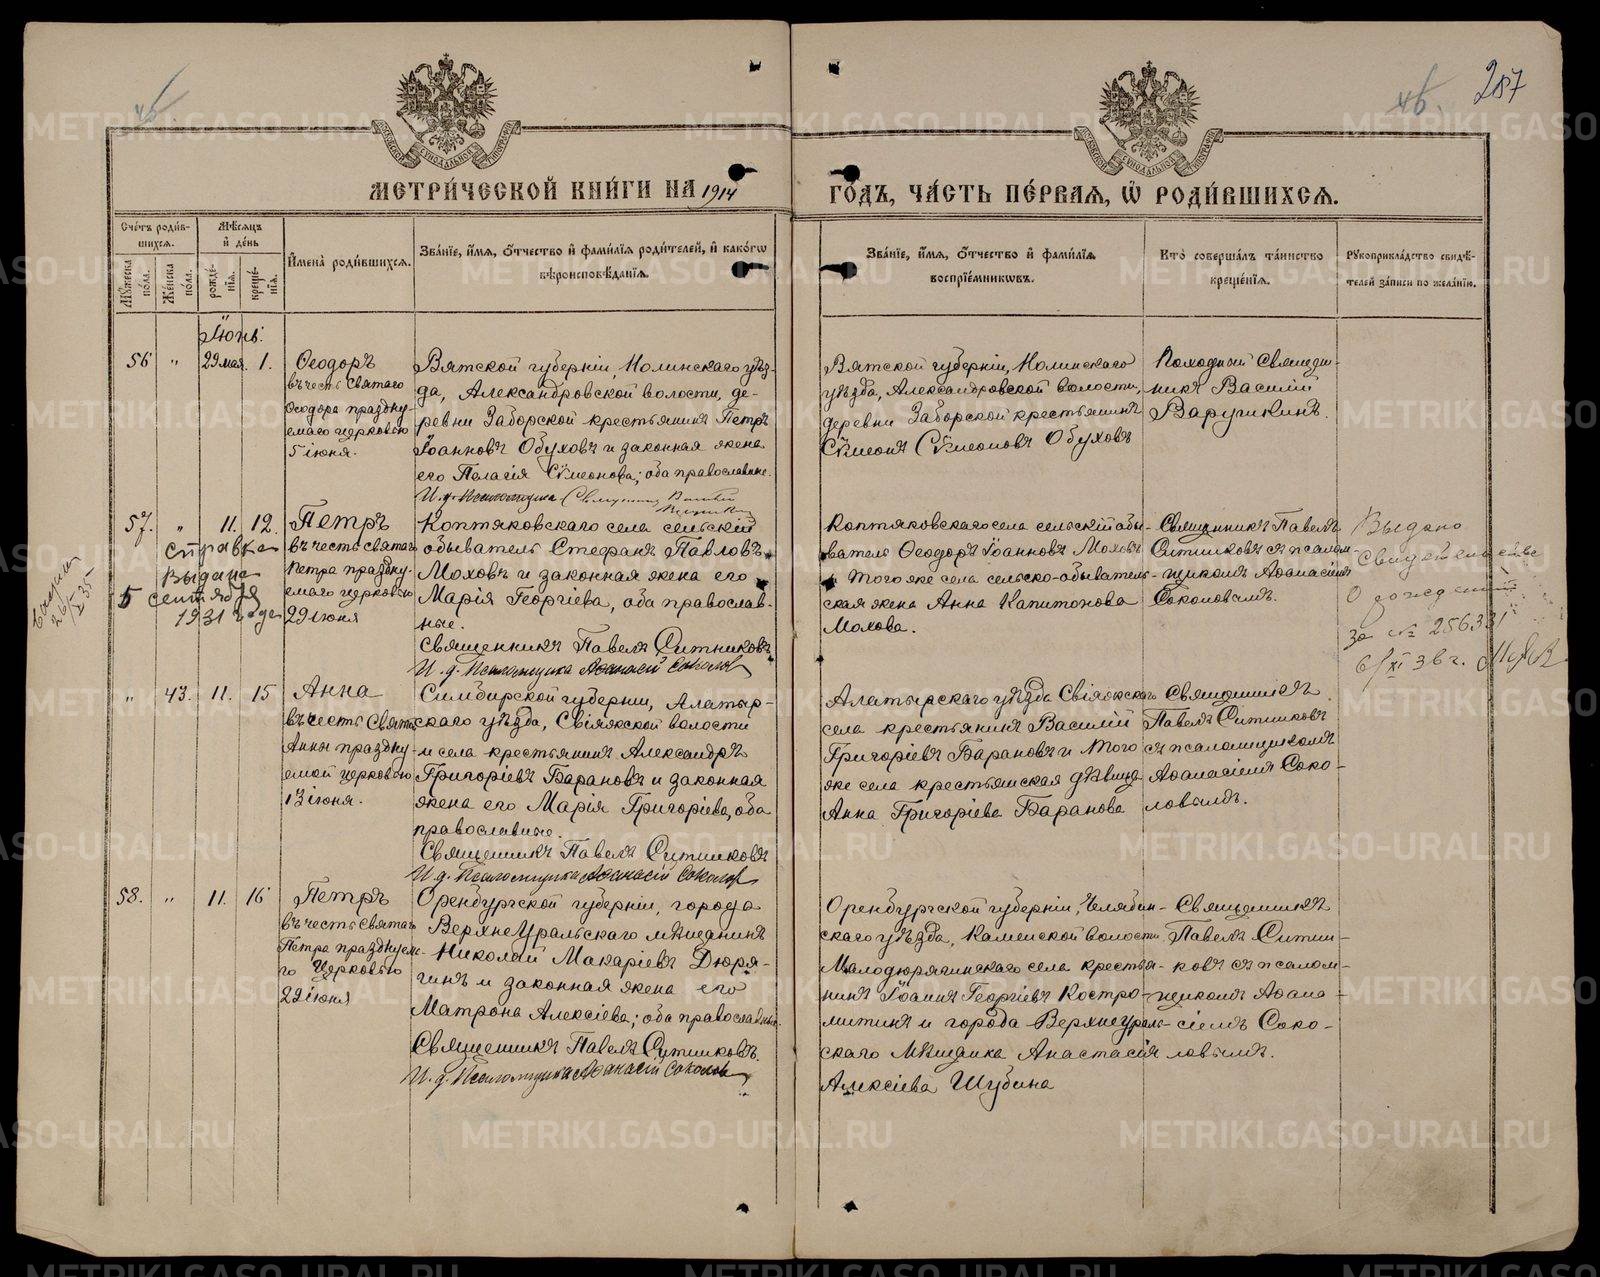 46.
46. 287
МЕТРИ́ЧЕСКОЙ КНИ́ГИ НА 1914 ГО́ДЪ, ЧА́СТЬ ПЕ́РВАЯ, Ѡ РОДИ́ВШИХСЯ.
Сче́тъ роди́в-
шихся.
Мꙋ́жеска по́ла.
Же́нска по́ла.
Мѣ́сяцъ
и҆ де́нь
рожде́-
нїя.
креще́-
нїя.
И҆мена̀ роди́вшихся.
Зва́нїе, и҆́мя, ѻ҆́тчество и҆ фами́лїя роди́телей, и҆ како́гѡ
вѣроисповѣ́данїя.
Зва́нїе, и҆́мя, ѻ҆́тчество и҆ фами́лїя
воспрїе́мникѡвъ.
Кто̀ соверша́лъ та́инство
креще́нїя.
Рꙋкоприкла́дство свидѣ́-
телей за́писи по жела́нїю.
Іюнь.
56 " 29 мая. 1.
Ѳеодоръ
въ честь святаго
Ѳеодора праздну-
емаго церковью
5 іюня.
Вятской губерніи, Нолинскаго уѣз-
да, Александровской волости, де-
ревни Заборской крестьянинъ Петръ
Іоанновъ Обуховъ и законная жена
его Пелагія Сѵмеонова; оба православные.
И. д. Псаломщика Священник Василій
Вятской губерніи, Нолинскаго
уѣзда, Александровской волости,
деревни Заборской крестьянинъ
Сѵмеонъ Сѵмеоновъ Обуховъ
Походный Священ-
никъ Василій
Варушкинъ.
57. " 11. 12.
справка
выдана
5 сентября
1931 года
26/X 35
Петръ
въ честь святаго
Петра праздну-
емаго церковью
29 іюня
Коптяковскаго села сельскій
обыватель Стефанъ Павловъ
Моховъ и законная жена его
Марія Георгіева, оба православ-
ные.
Священникъ Павелъ Ситниковъ
И. д. Псаломщика Аѳанасій Соколов
Коптяковскаго села сельскій обы-
ватель Ѳеодоръ Іоанновъ Моховъ
и того же села сельско-обыватель-
ская жена Анна Капитонова
Мохова.
Священникъ Павелъ
Ситниковъ съ псалом-
щикомъ Аѳанасіемъ
Соколовымъ.
Выдано
Свидетельство
О рождении
за № 256331
6/XI 36 г.
" 43. 11. 15
Анна
въ честь Святой
Анны праздну-
емой церковью
13 іюня.
Симбирской губерніи, Алатыр-
скаго уѣзда, Свіяжской волости
и села крестьянинъ Александръ
Григоріевъ Барановъ и законная
жена его Марія Григоріева, оба
православные.
Священникъ Павелъ Ситниковъ
И. д. Псаломщика Аѳанасій Соколов
Алатырскаго уѣзда Свіяжскаго
села крестьянинъ Василій
Григоріевъ Барановъ и того
же села крестьянская дѣвица
Анна Григоріева Баранова
Священникъ
Павелъ Ситниковъ
съ псаломщикомъ
Аѳанасіемъ Соко-
ловымъ.
58. " 11. 16
Петръ
въ честь Святаго
Петра празднуема-
го Церковью
29 іюня
Оренбургской губерніи, города
Верхнеуральскаго мѣщанинъ
Николай Макаріевъ Дюря-
гинъ и законная жена его
Матрона Алексіева; оба православные.
Священникъ Павелъ Ситниковъ.
И. д. Псаломщика Аѳанасій Соколов
Оренбургской губерніи, Челябин-
скаго уѣзда, Каменской волости
Малодюрягинскаго села крестья-
нинъ Іоаннъ Георгіевъ Костро-
митинъ и города Верхнеураль-
скаго Мѣщанка Анастасія
Алексіева Шубина
Священникъ
Павелъ Ситни-
ковъ съ псалом-
щикомъ Аѳана-
сіемъ Соко-
ловымъ.
METRIKI.GASO-URAL.RU